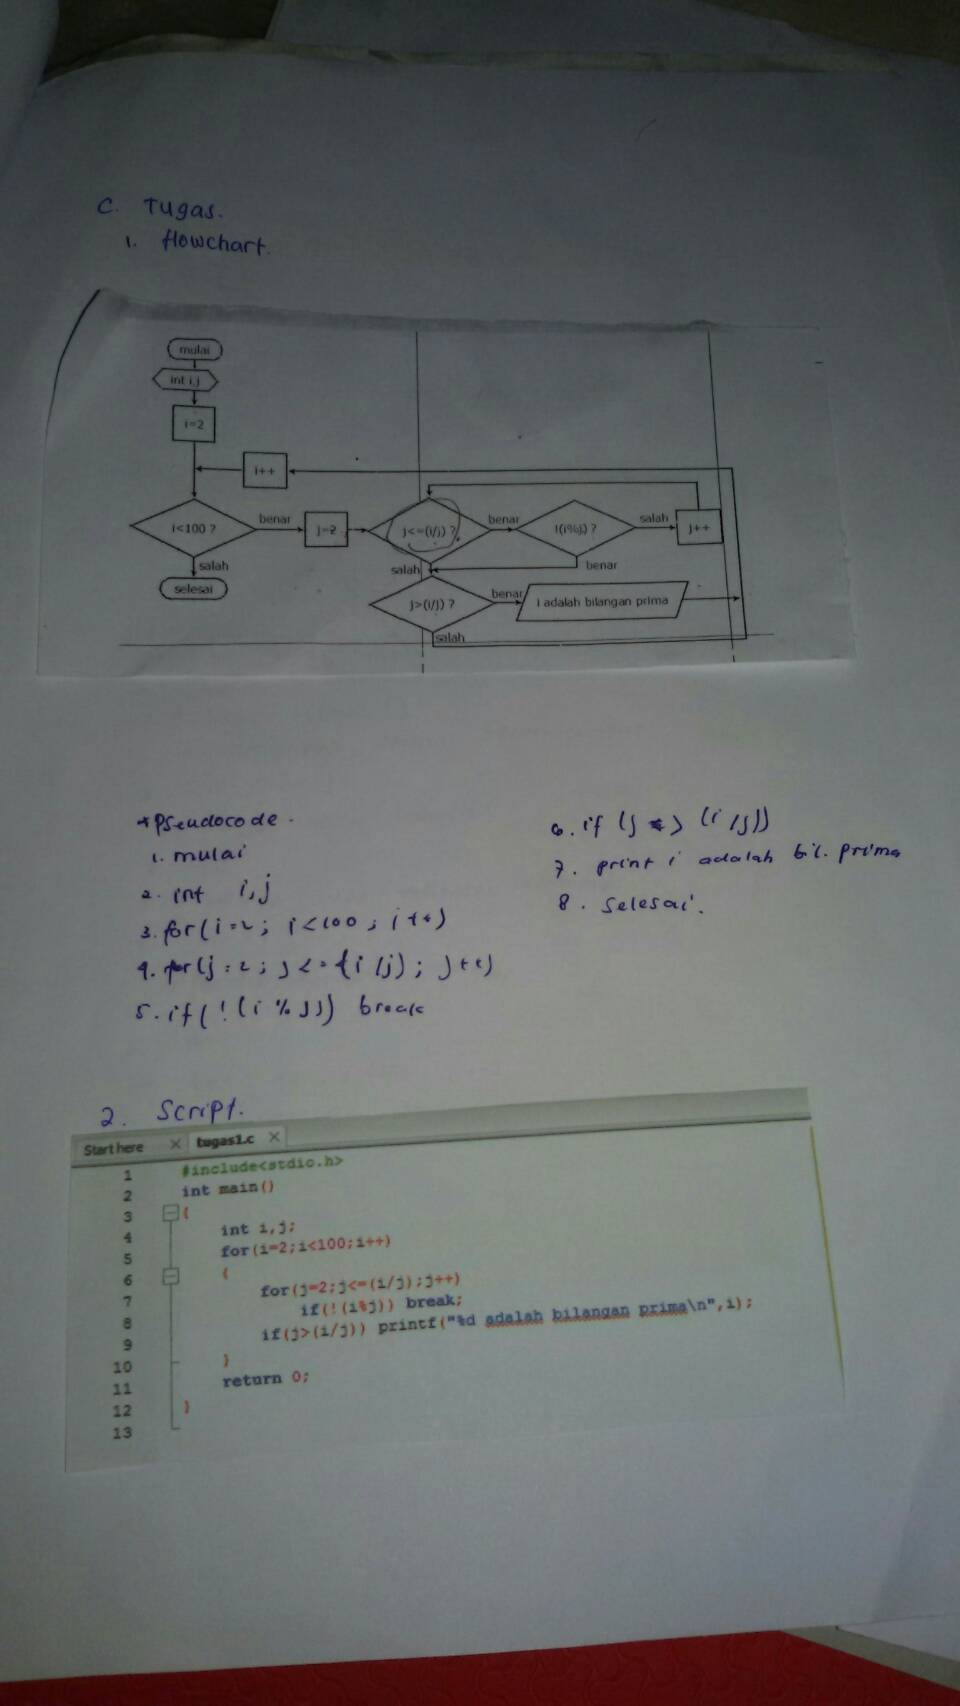 C. Tugas.
1. flowchart.
mulai
int i,j
i=2
i++
i<100 ?
benar
j=2
j<=(i/j) ?
benar
!(i%j) ?
salah
j++
salah
selesai
salah
benar
j>(i/j) ?
benar
i adalah bilangan prima
salah
*Pseudocode.
1. mulai
2. int i,j
3. for(i=2; i<100; i++)
4. for(j=2; j<=(i/j); j++)
5. if(!(i%j)) break
6. if (j > (i/j))
7. print i adalah bil. prima
8. selesai.
2. Script.
Start here × tugas1.c ×
1 #include<stdio.h>
2 int main()
3 {
4 int i,j;
5 for(i=2;i<100;i++)
6 {
7 for(j=2;j<=(i/j);j++)
8 if(!(i%j)) break;
9 if(j>(i/j)) printf("%d adalah bilangan prima\n",i);
10 }
11 return 0;
12 }
13